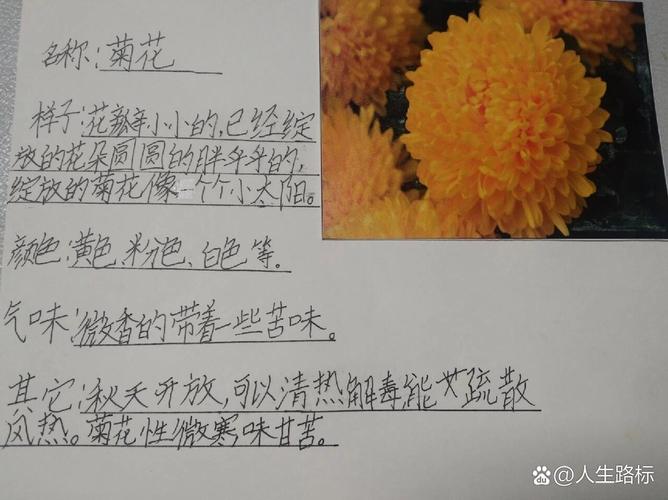 名称:菊花
样子:花瓣小小的,已经绽
放的花朵圆圆的胖乎乎的,
绽放的菊花像一个个小太阳。
颜色:黄色、粉色、白色等。
气味:微香的带着一些苦味。
其它:秋天开放,可以清热解毒能疏散
风热。菊花性微寒味甘苦。
Baidu @人生路标